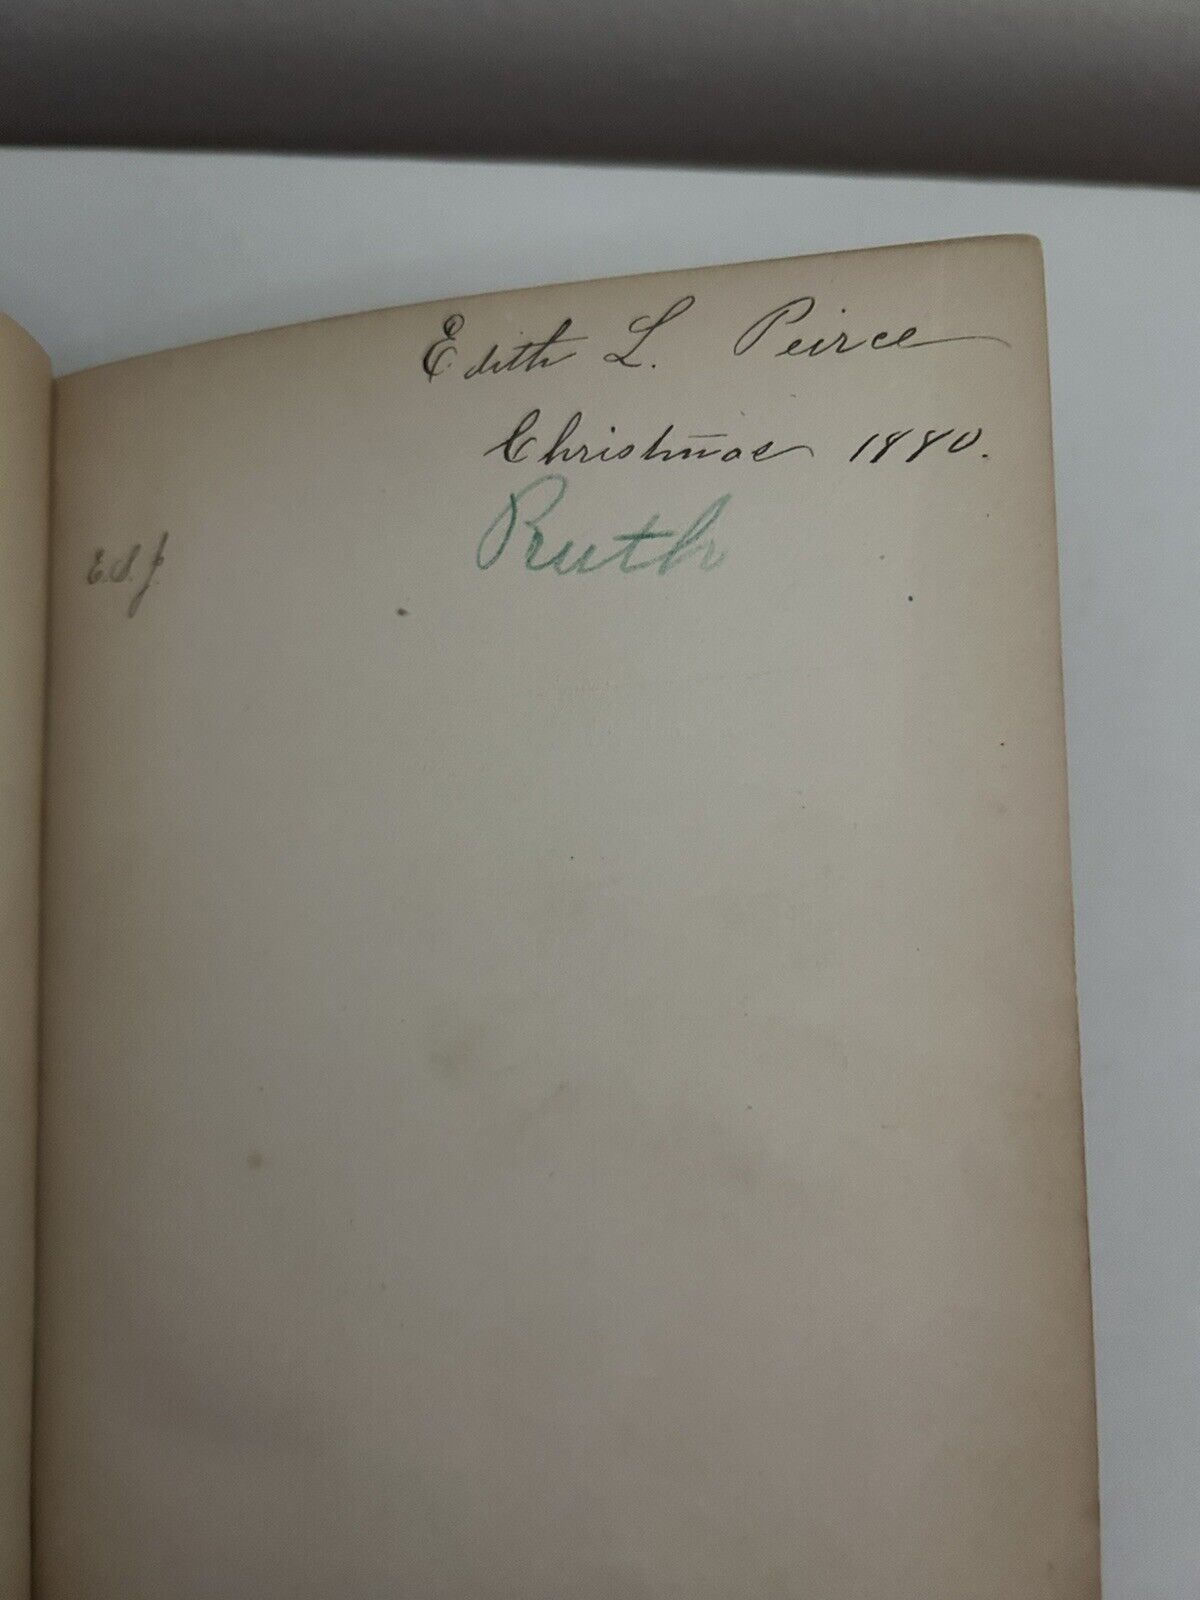 Edith L. Peirce
Christmas 1880.
Ruth
E.S.J.